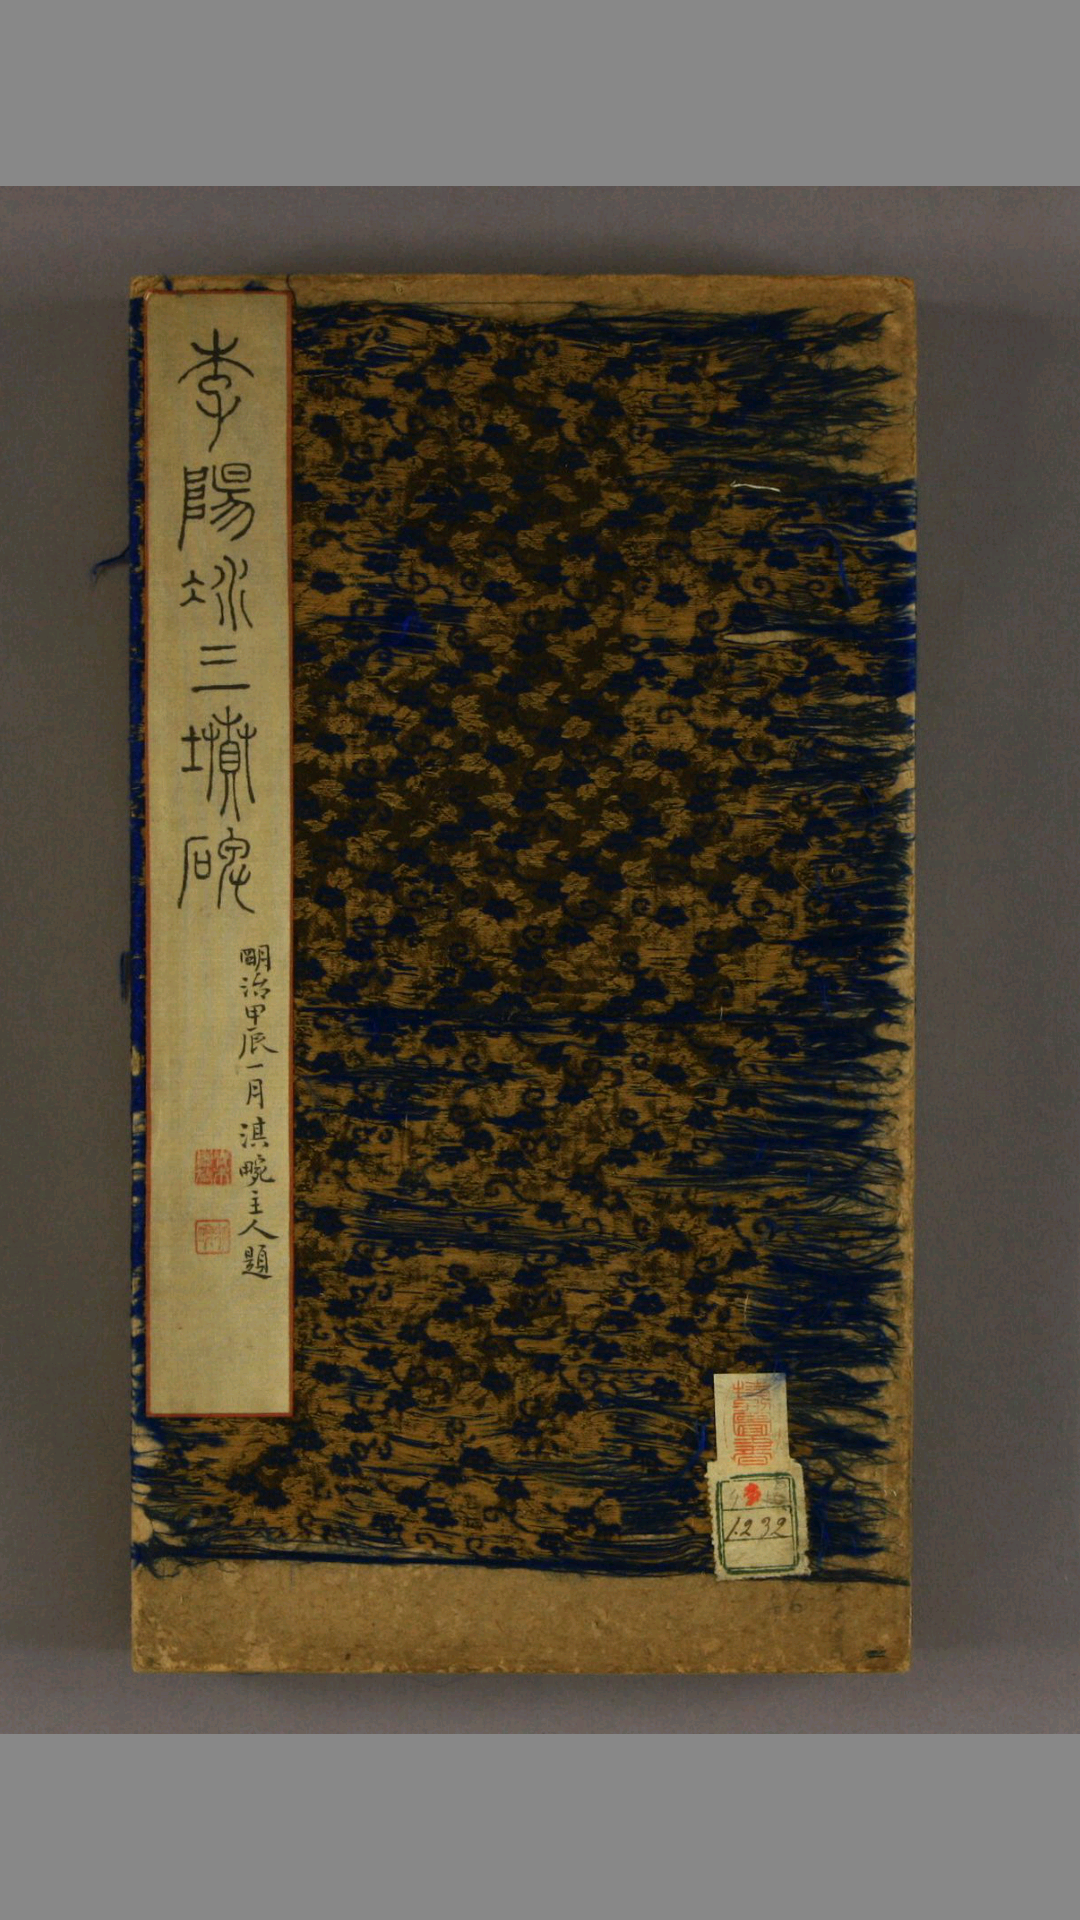 李陽冰三墳碑
明治甲辰一月淇畹主人題
1232